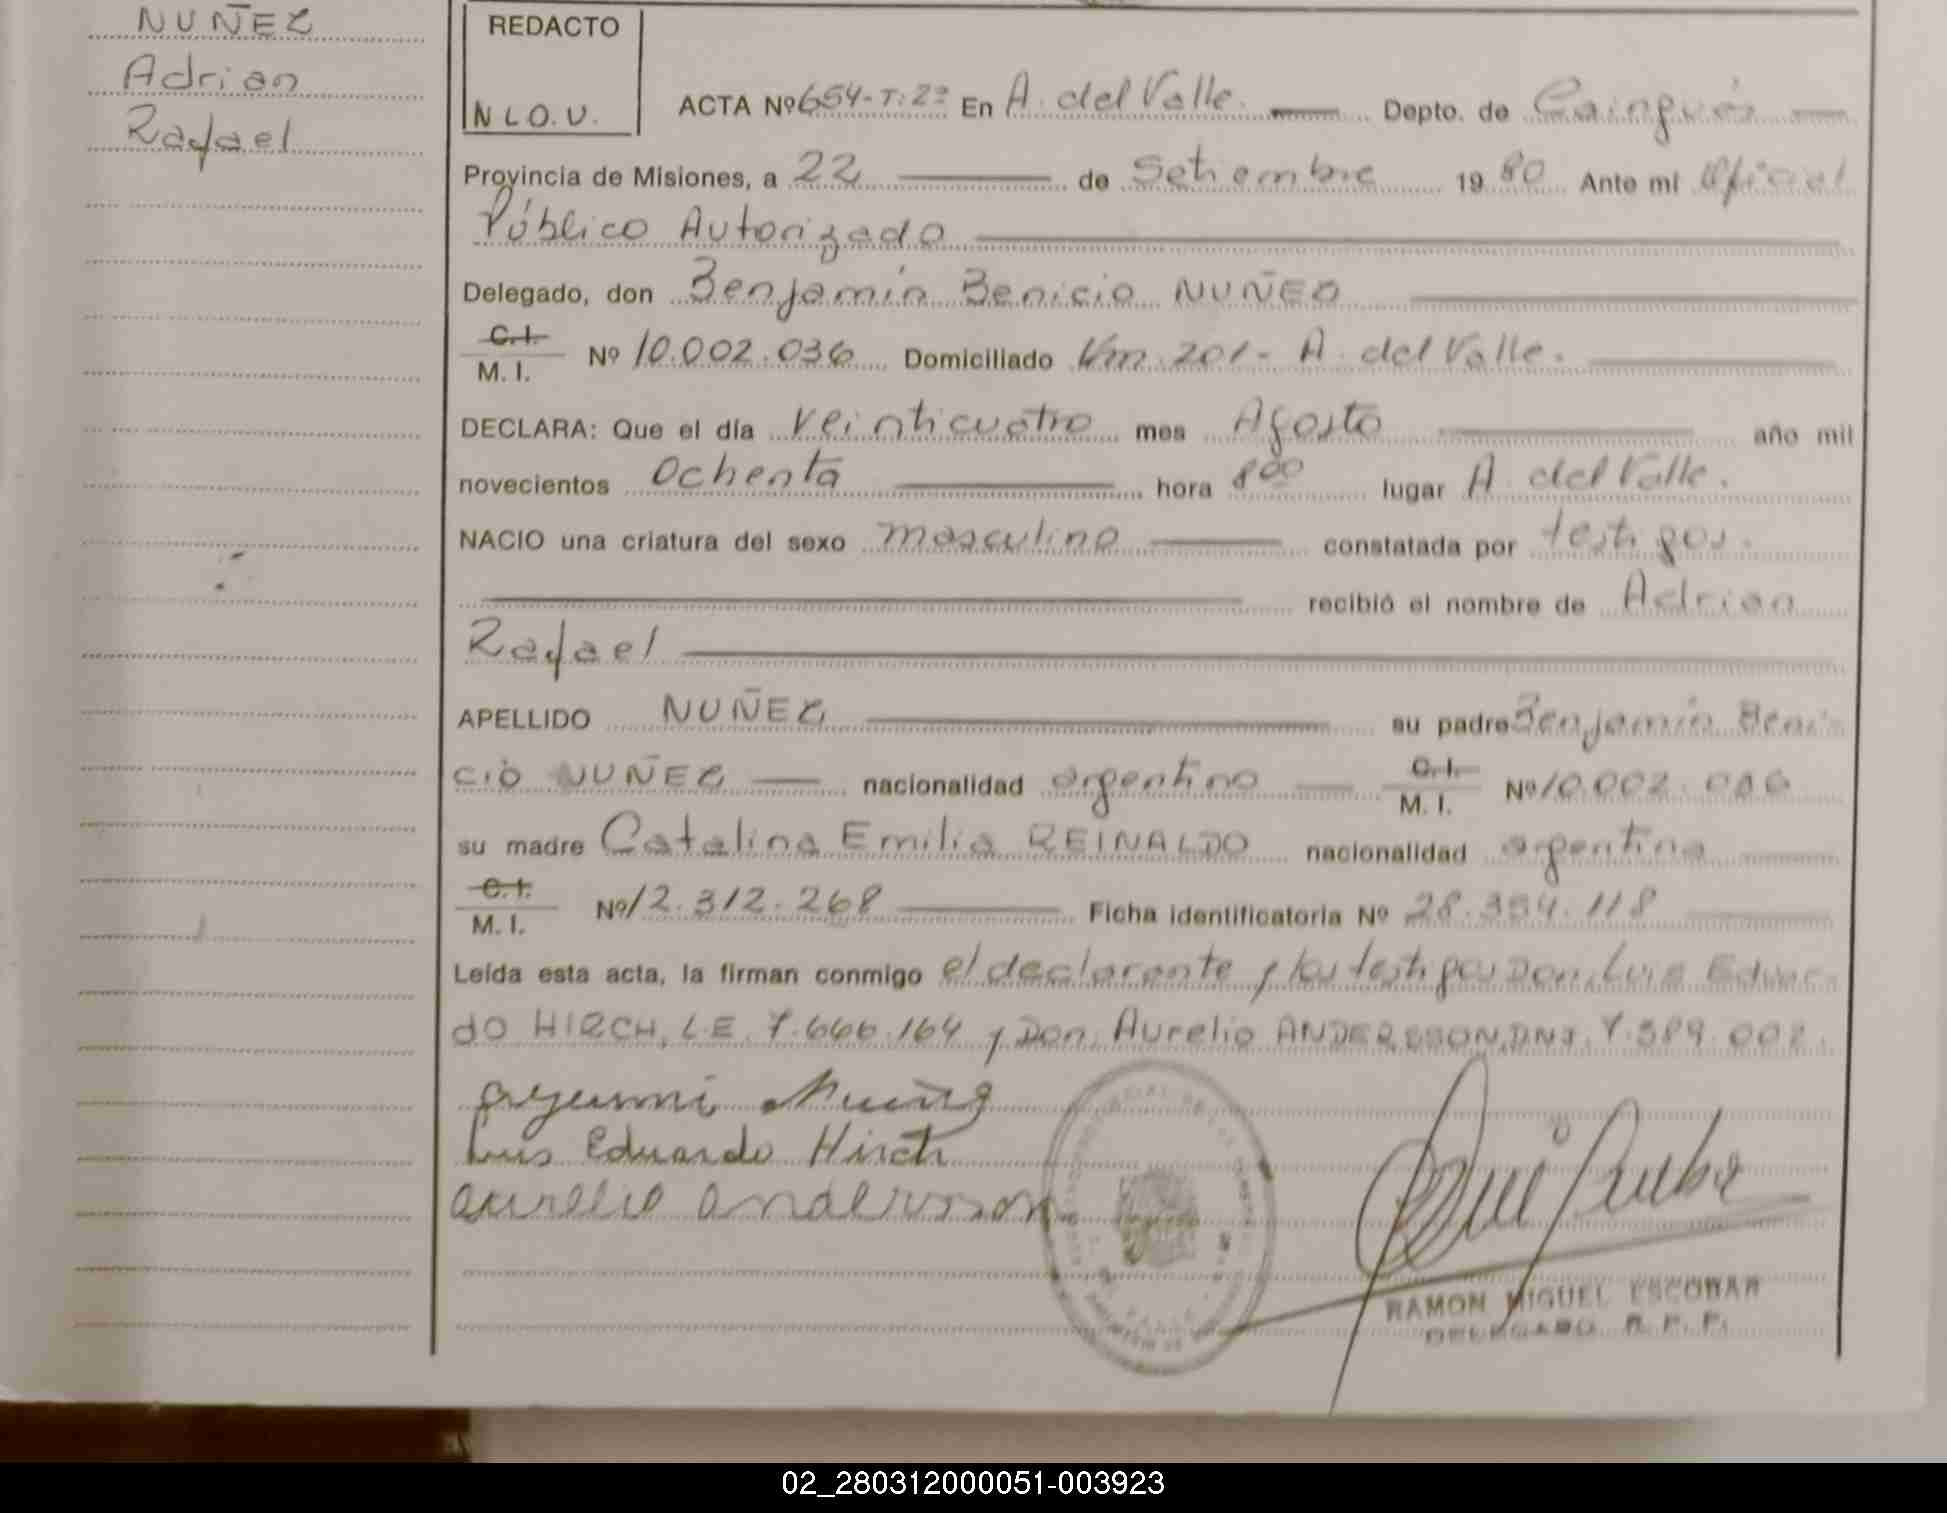 NUÑEZ
Adrian
Rafael
REDACTO
N L O. U.
ACTA Nº 654-T:2º En A. del Valle. Depto. de Cainguás
Provincia de Misiones, a 22 de Setiembre 19 80 Ante mí Oficial
Público Autorizado
Delegado, don Benjamín Benicio NUÑEZ
C.I.
M. I. Nº 10.002.036 Domiciliado Km. 201- A. del Valle.
DECLARA: Que el día Veinticuatro mes Agosto año mil
novecientos Ochenta hora 800 lugar A. del Valle.
NACIO una criatura del sexo masculino constatada por testigos.
recibió el nombre de Adrian
Rafael
APELLIDO NUÑEZ su padre Benjamín Beni
cio NUÑEZ nacionalidad argentino C.I.
M. I. Nº 10.002.036
su madre Catalina Emilia REINALDO nacionalidad argentina
C.I.
M. I. Nº 12.312.268 Ficha identificatoria Nº 28.354.118
Leída esta acta, la firman conmigo el declarante y los testigos Don Luis Eduar
do HIRCH, L.E. 7.666.164 y Don. Aurelio ANDERSSON, DNI. 7.389.002.
Luis Eduardo Hirch
aurelio andersson
RAMON MIGUEL ESCOBAR
DELEGADO R. P. P.
02_280312000051-003923